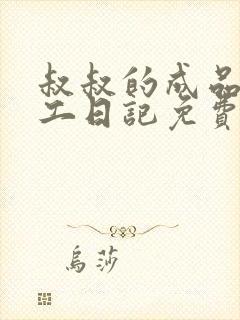 叔叔的成品
工日記免費
烏莎